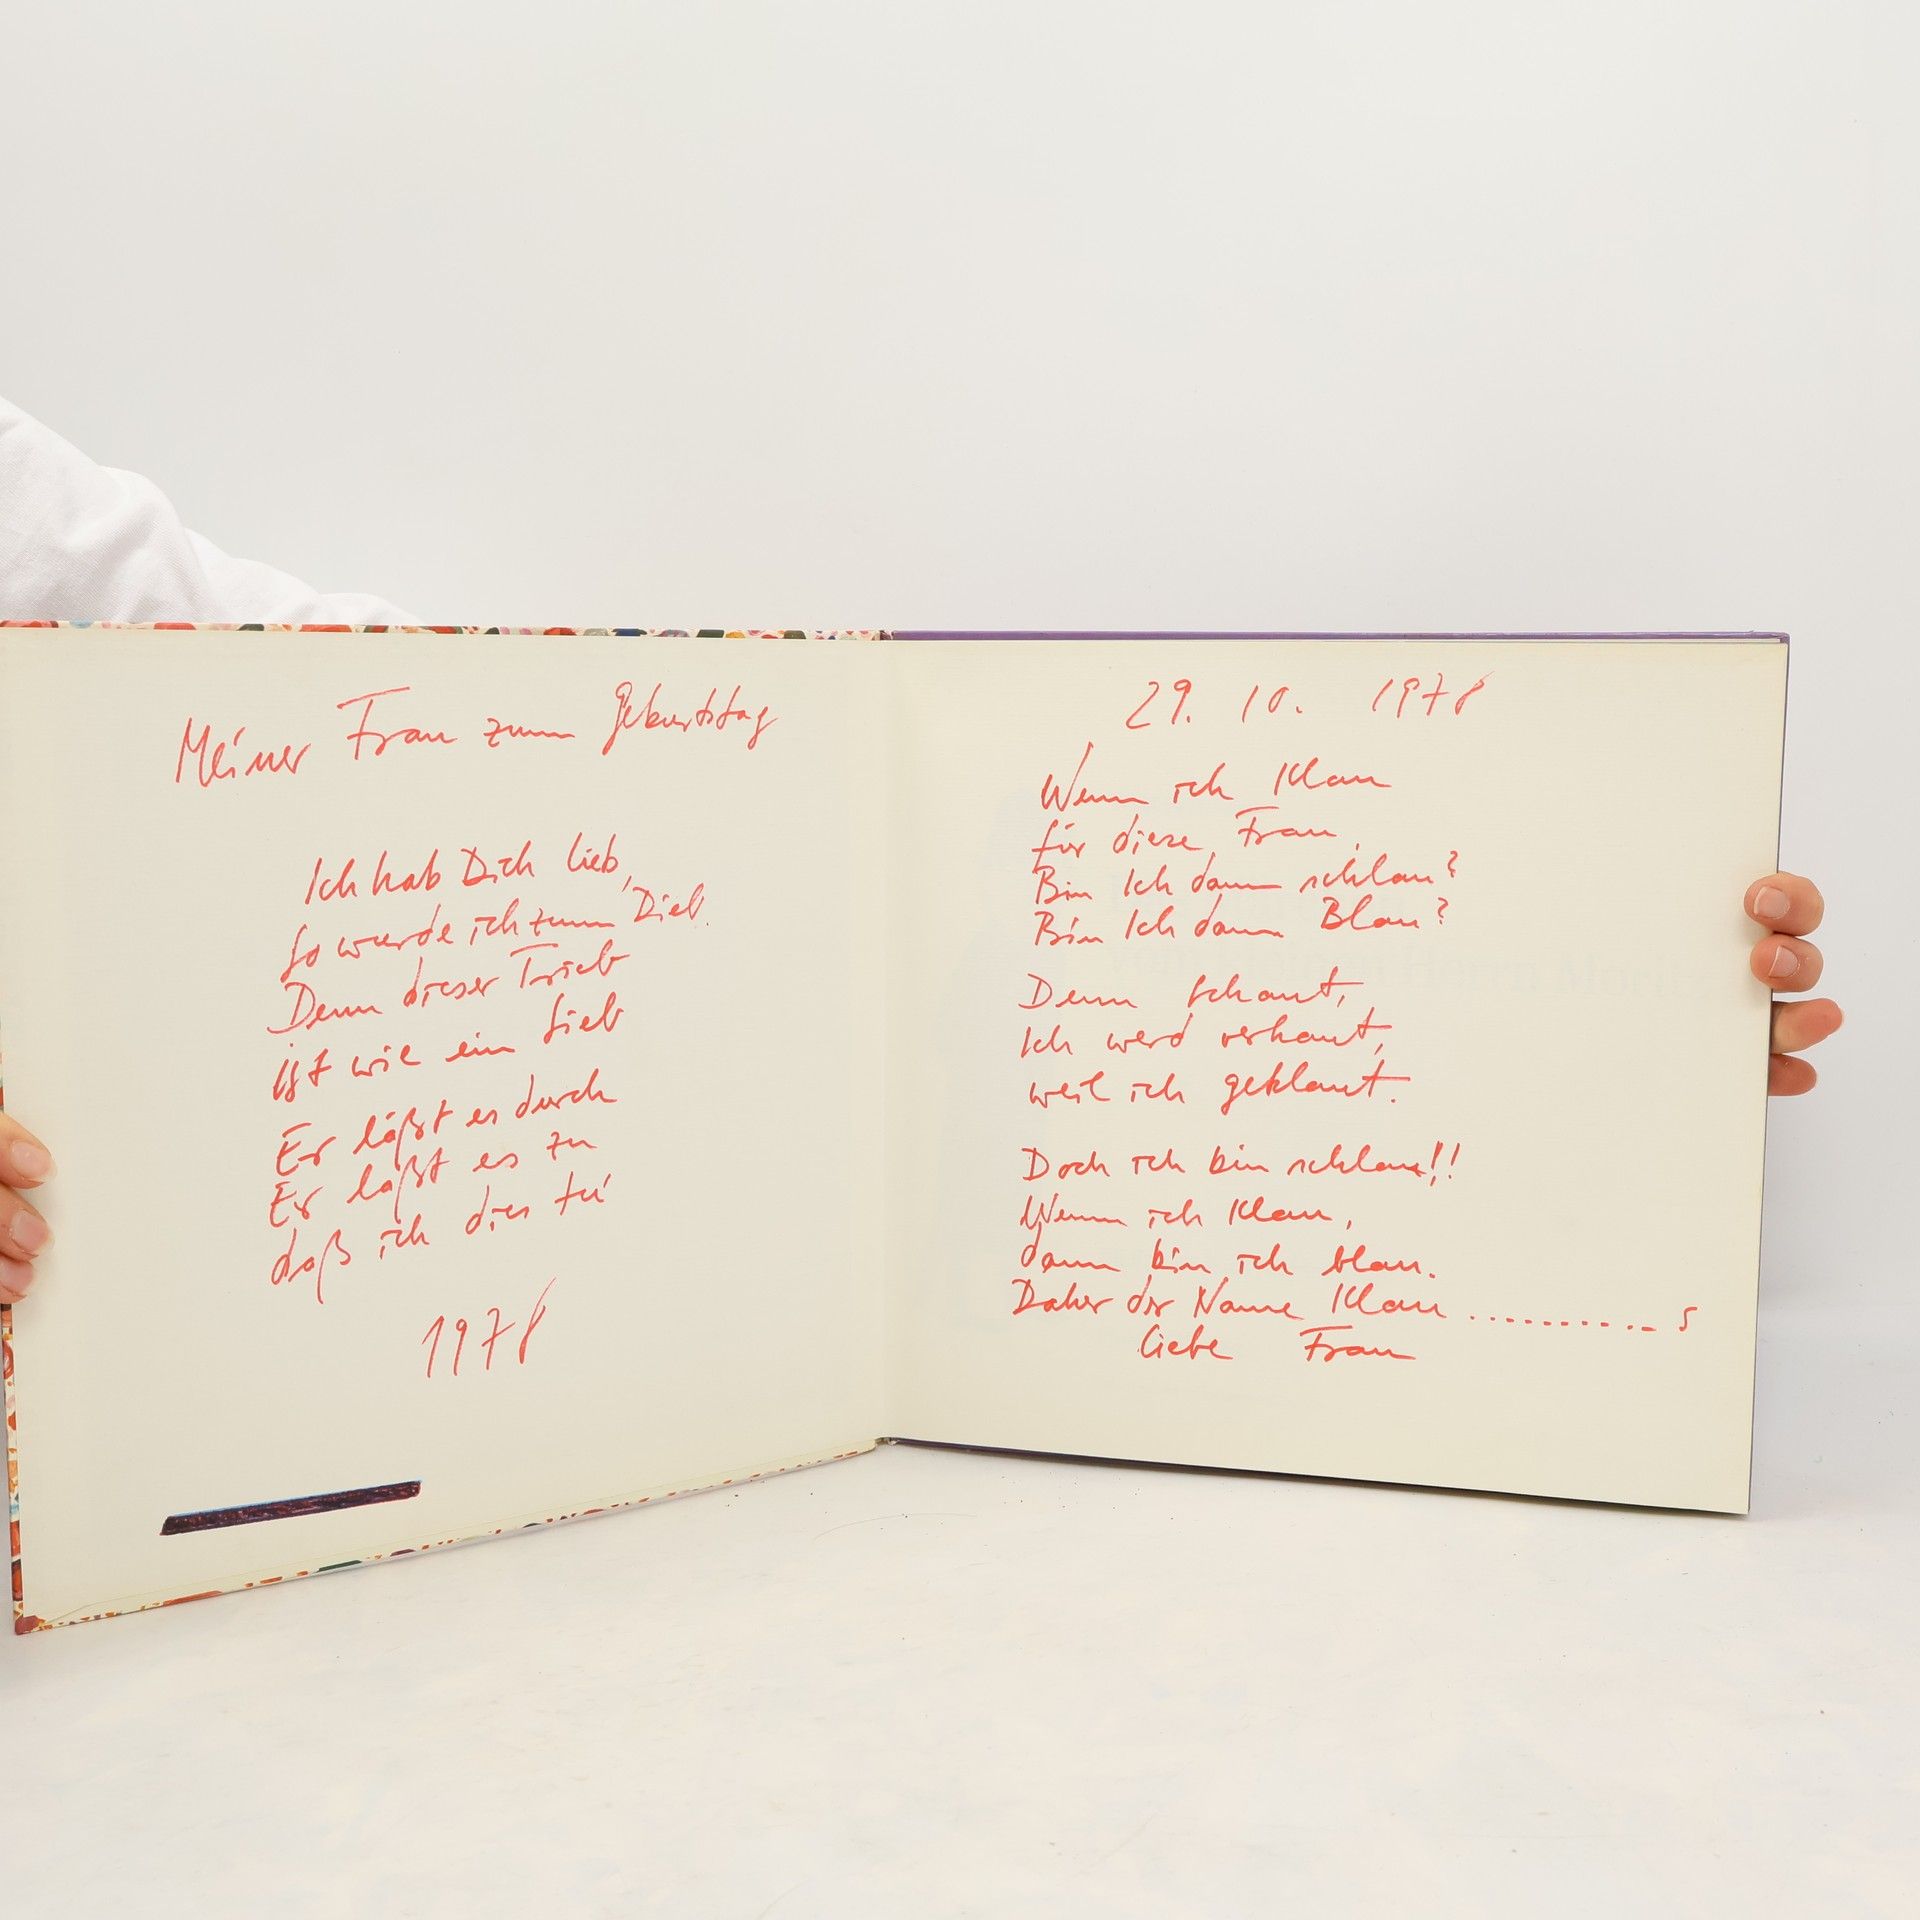 Meiner Frau zum Geburtstag
Ich hab Dich lieb,
So wurde ich zum Dieb.
Denn dieser Trieb
ist wie ein Sieb
Er läßt es durch
Er läßt es zu
daß ich dies tu'
1978
29. 10. 1978
Wenn ich Klau
für diese Frau,
Bin Ich dann schlau?
Bin Ich dann Blau?
Denn schaut,
Ich werd verhaut,
weil ich geklaut.
Doch ich bin schlau!!
Wenn ich Klau,
dann bin ich blau.
Daher der Name Klau ........... s
liebe Frau